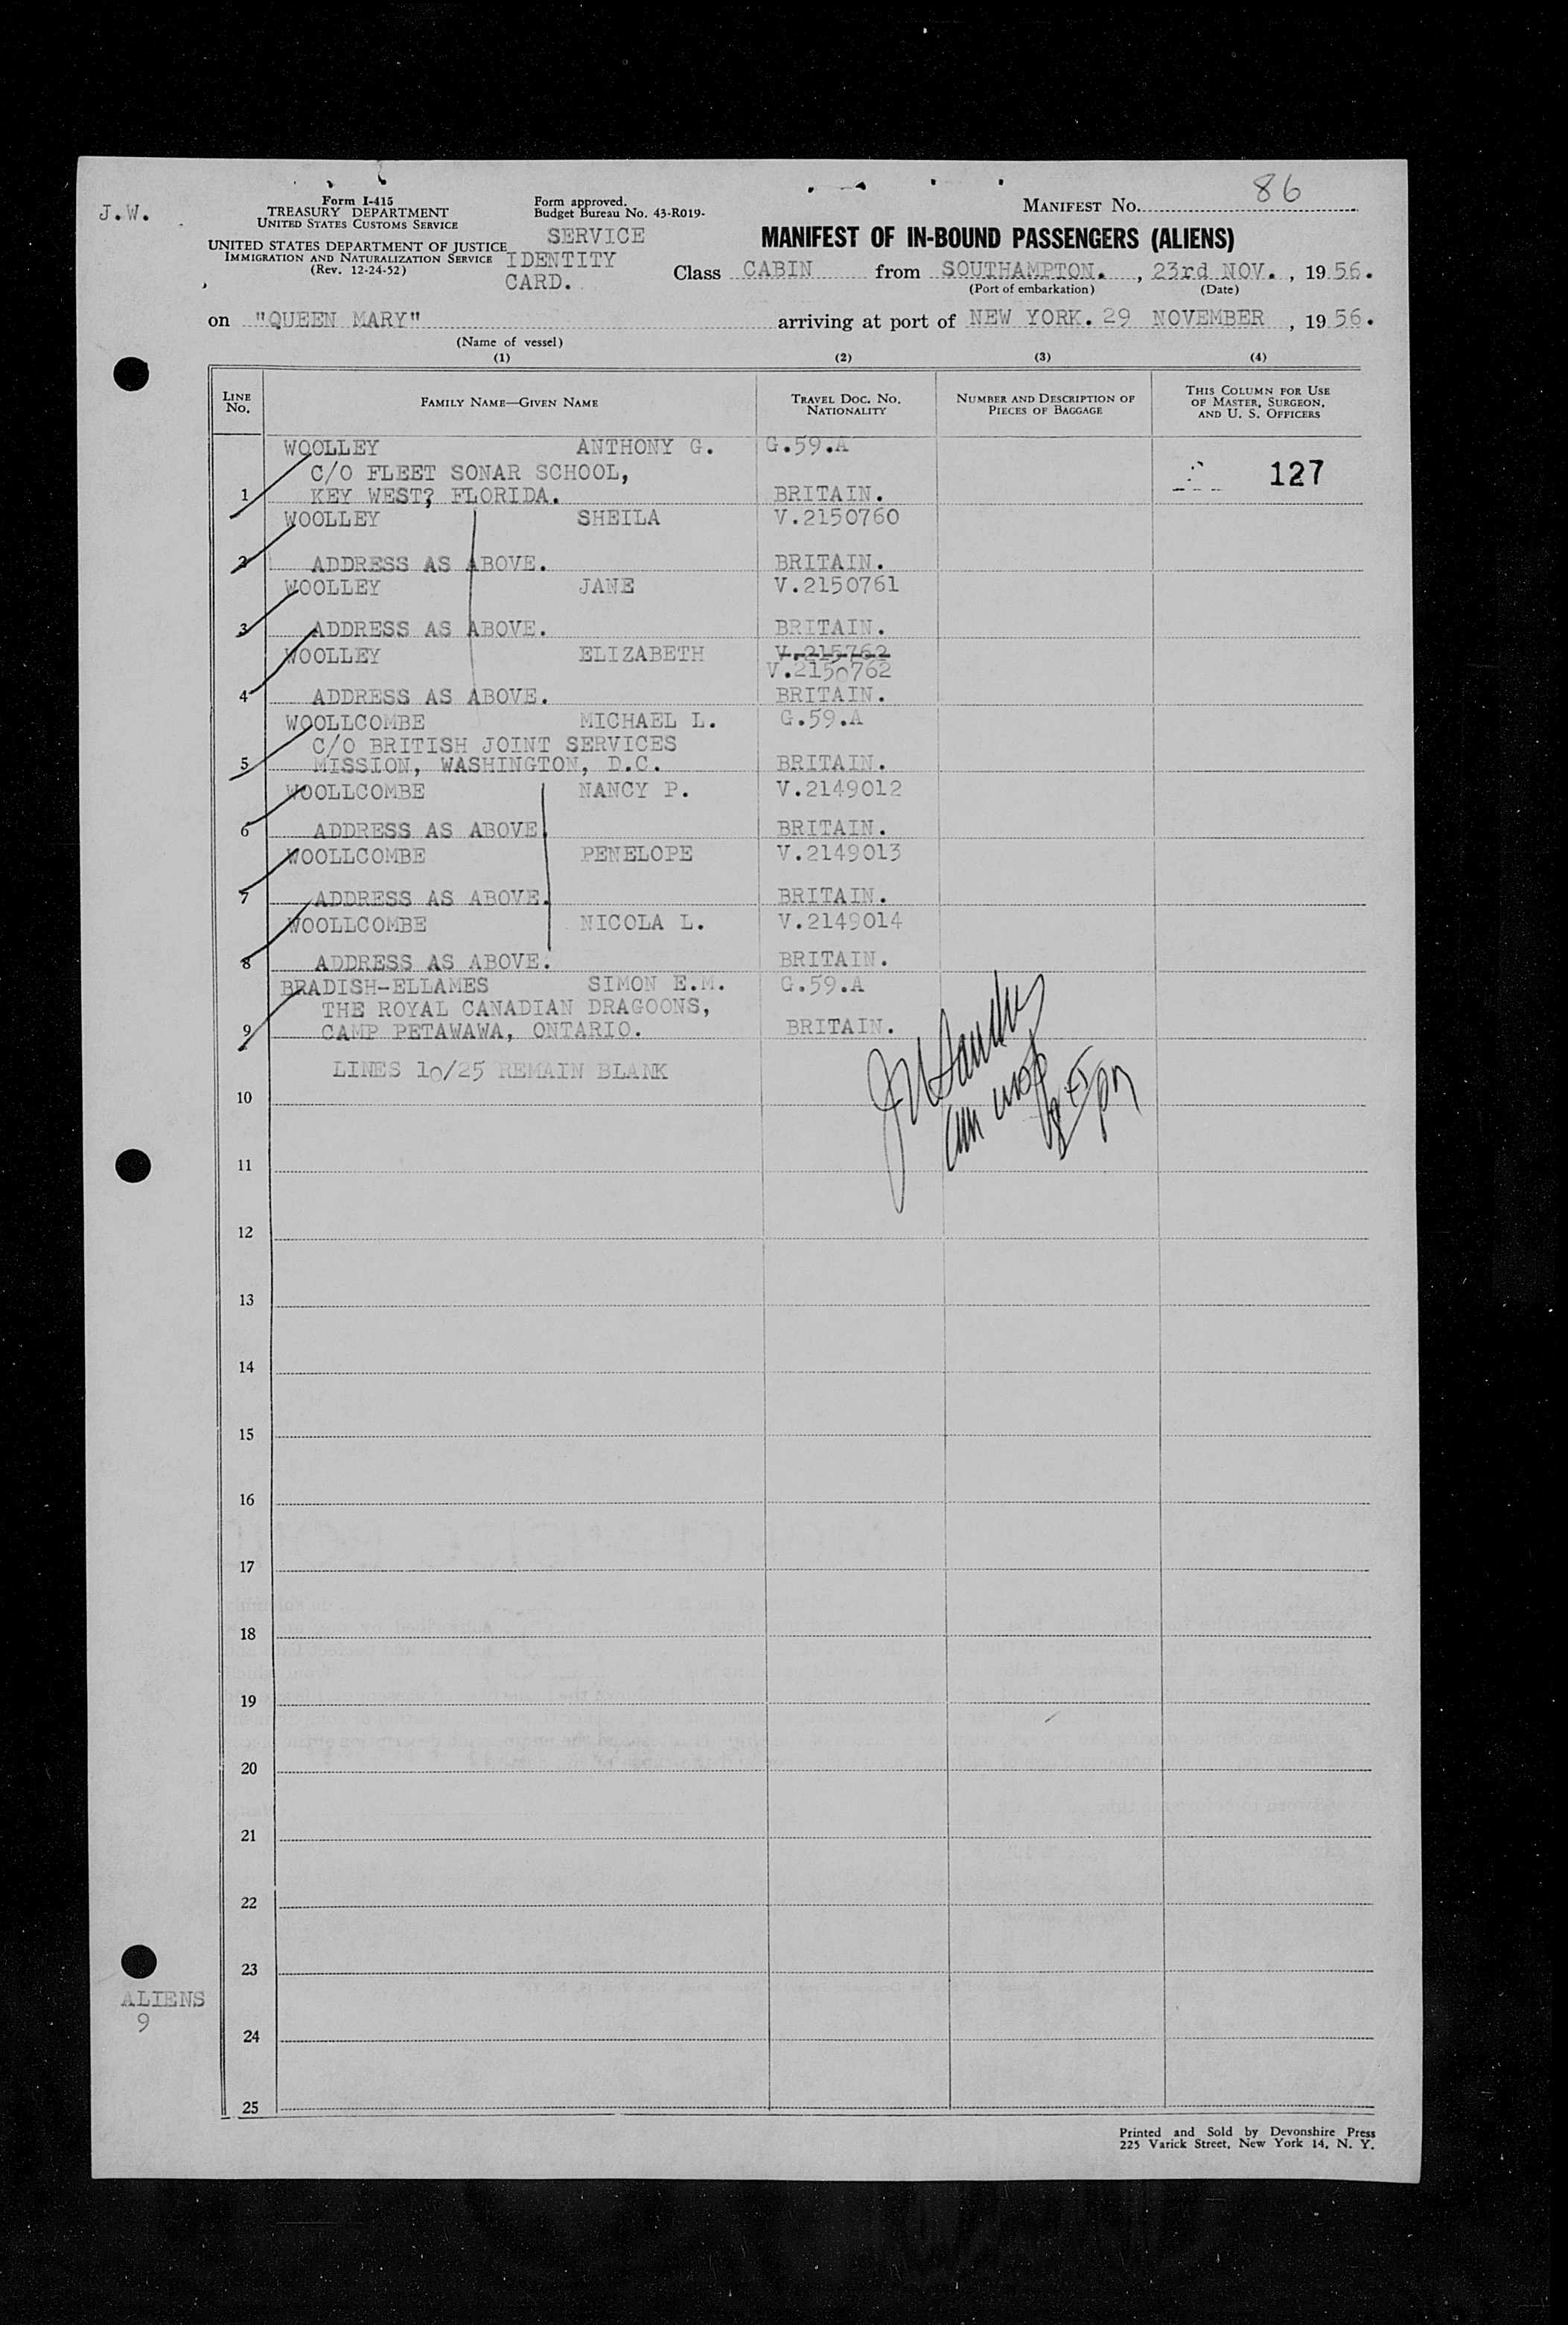 J.W.
Form I-415
TREASURY DEPARTMENT
UNITED STATES CUSTOMS SERVICE
UNITED STATES DEPARTMENT OF JUSTICE
IMMIGRATION AND NATURALIZATION SERVICE
(Rev. 12-24-52)
Form approved.
Budget Bureau No. 43-R019-
SERVICE
IDENTITY
CARD.
MANIFEST NO. 86
MANIFEST OF IN-BOUND PASSENGERS (ALIENS)
Class CABIN from SOUTHAMPTON. , 23rd NOV. , 19 56.
(Port of embarkation) (Date)
on "QUEEN MARY" arriving at port of NEW YORK. 29 NOVEMBER , 19 56.
(Name of vessel)
(1) (2) (3) (4)
LINE NO. FAMILY NAME—GIVEN NAME TRAVEL DOC. NO. NATIONALITY NUMBER AND DESCRIPTION OF PIECES OF BAGGAGE THIS COLUMN FOR USE OF MASTER, SURGEON, AND U. S. OFFICERS
WOOLLEY ANTHONY G. G.59.A
C/O FLEET SONAR SCHOOL, 127
1 KEY WEST? FLORIDA. BRITAIN.
WOOLLEY SHEILA V.2150760
2 ADDRESS AS ABOVE. BRITAIN.
WOOLLEY JANE V.2150761
3 ADDRESS AS ABOVE. BRITAIN.
WOOLLEY ELIZABETH V.215762
V.2150762
4 ADDRESS AS ABOVE. BRITAIN.
WOOLLCOMBE MICHAEL L. G.59.A
C/O BRITISH JOINT SERVICES
5 MISSION, WASHINGTON, D.C. BRITAIN.
WOOLLCOMBE NANCY P. V.2149012
6 ADDRESS AS ABOVE BRITAIN.
WOOLLCOMBE PENELOPE V.2149013
7 ADDRESS AS ABOVE. BRITAIN.
WOOLLCOMBE NICOLA L. V.2149014
8 ADDRESS AS ABOVE. BRITAIN.
BRADISH-ELLAMES SIMON E.M. G.59.A
THE ROYAL CANADIAN DRAGOONS,
9 CAMP PETAWAWA, ONTARIO. BRITAIN.
LINES 10/25 REMAIN BLANK
10
11
12
13
14
15
16
17
18
19
20
21
22
23
24
25
ALIENS
9
Printed and Sold by Devonshire Press
225 Varick Street, New York 14, N. Y.